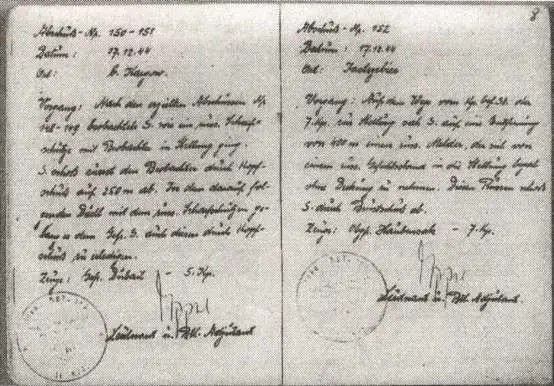 Abschuß-Np. 150-151
Datum: 17.12.44
Ort:
Vorgang: Nach den erzielten Abschüssen Np.
beobachtete S. wie ein russ. Scharf-
schütze mit Beobachter in Stellung ging.
S. schoß zuerst den Beobachter durch Kopf-
schuß auf 250 m ab. In den darauf fol-
genden Duell mit dem russ. Scharfschützen ge-
lang es dem Gefr. S. auch diesen durch Kopf-
schuß zu erledigen.
Zeuge: Gefr. - 5. Kp.
Leutnant u. Btl. Adjutant
8
Abschuß-Np. 152
Datum: 17.12.44
Ort:
Vorgang: Auf dem Weg vom Kp. Gef. St. der
7. Kp. zur Stellung sah S. auf eine Entfernung
von 400 m einen russ. Melder, der sich von
einem russ. Gefechtsstand in die Stellung begab
ohne Deckung zu nehmen. Diesen Russen schoß
S. durch Brustschuß ab.
Zeuge: - 7. Kp.
Leutnant u. Btl. Adjutant